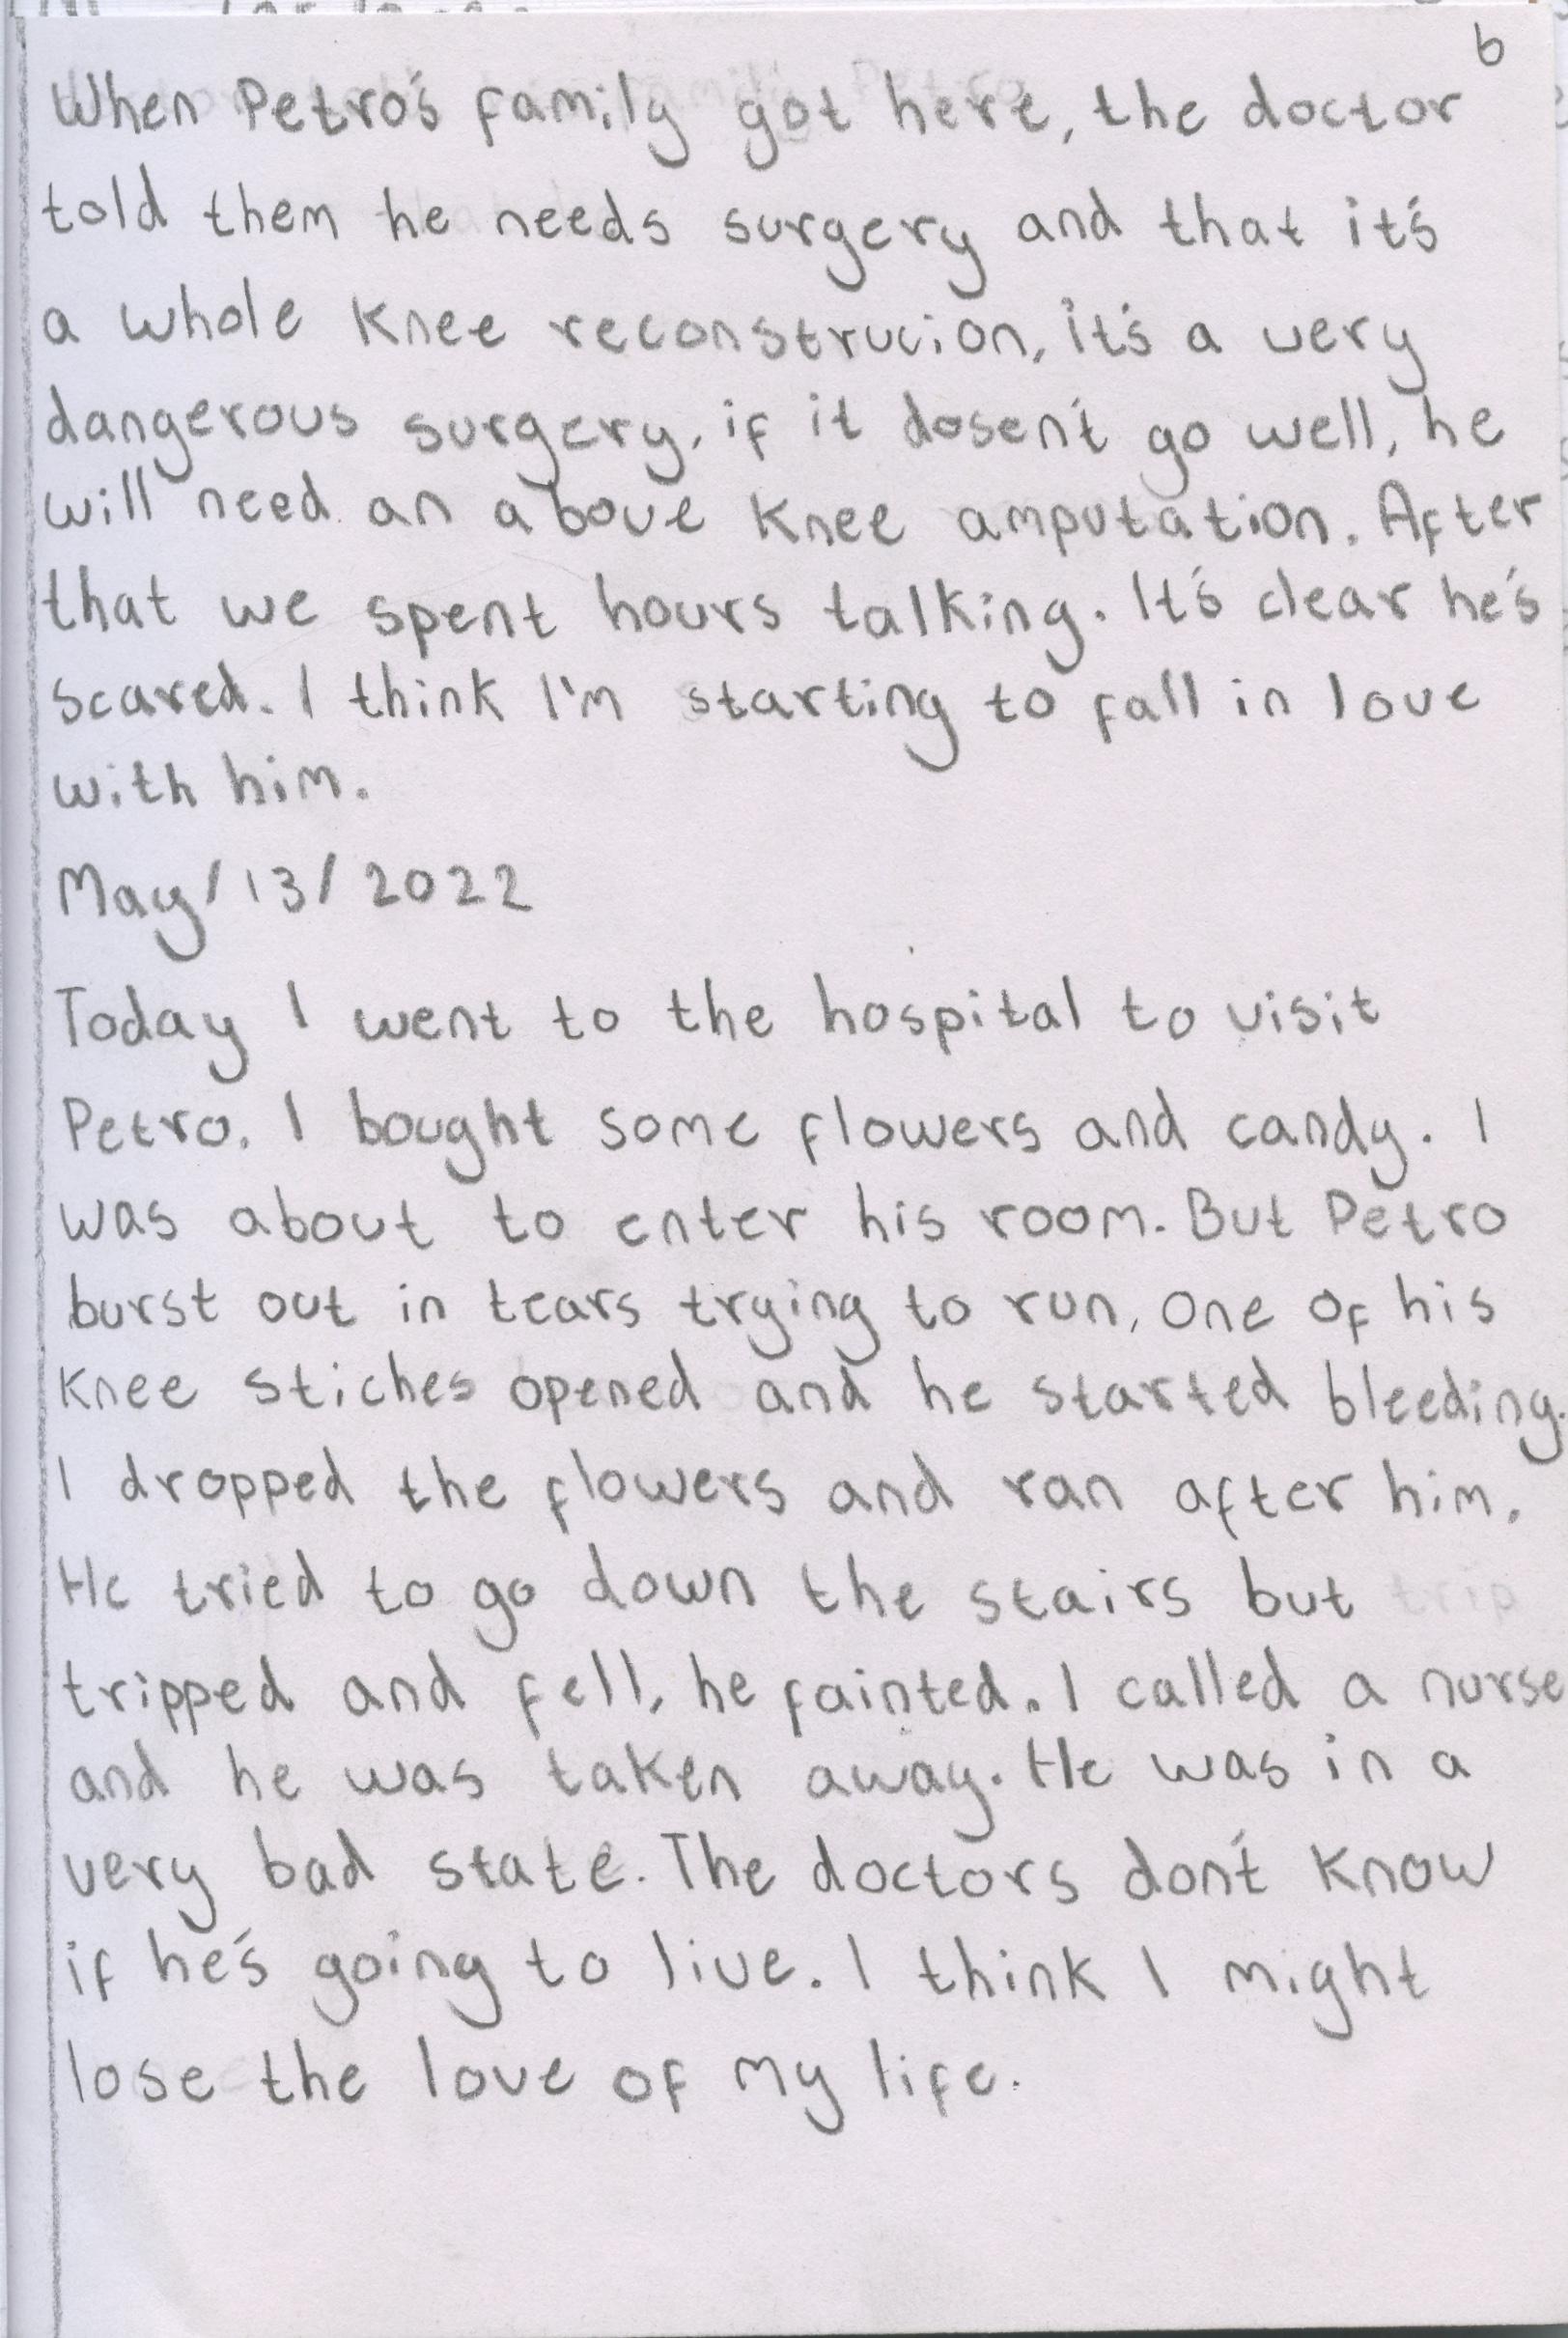 6
When Petro's family got here, the doctor
told them he needs surgery and that it's
a whole knee reconstrucion, it's a very
dangerous surgery, if it dosen't go well, he
will need an above knee amputation. After
that we spent hours talking. It's clear he's
scared. I think I'm starting to fall in love
with him.
May/13/2022
Today I went to the hospital to visit
Petro. I bought some flowers and candy. I
was about to enter his room. But Petro
burst out in tears trying to run, one of his
knee stiches opened and he started bleeding.
I dropped the flowers and ran after him.
He tried to go down the stairs but trip
tripped and fell, he fainted. I called a nurse
and he was taken away. He was in a
very bad state. The doctors don't know
if he's going to live. I think I might
lose the love of my life.